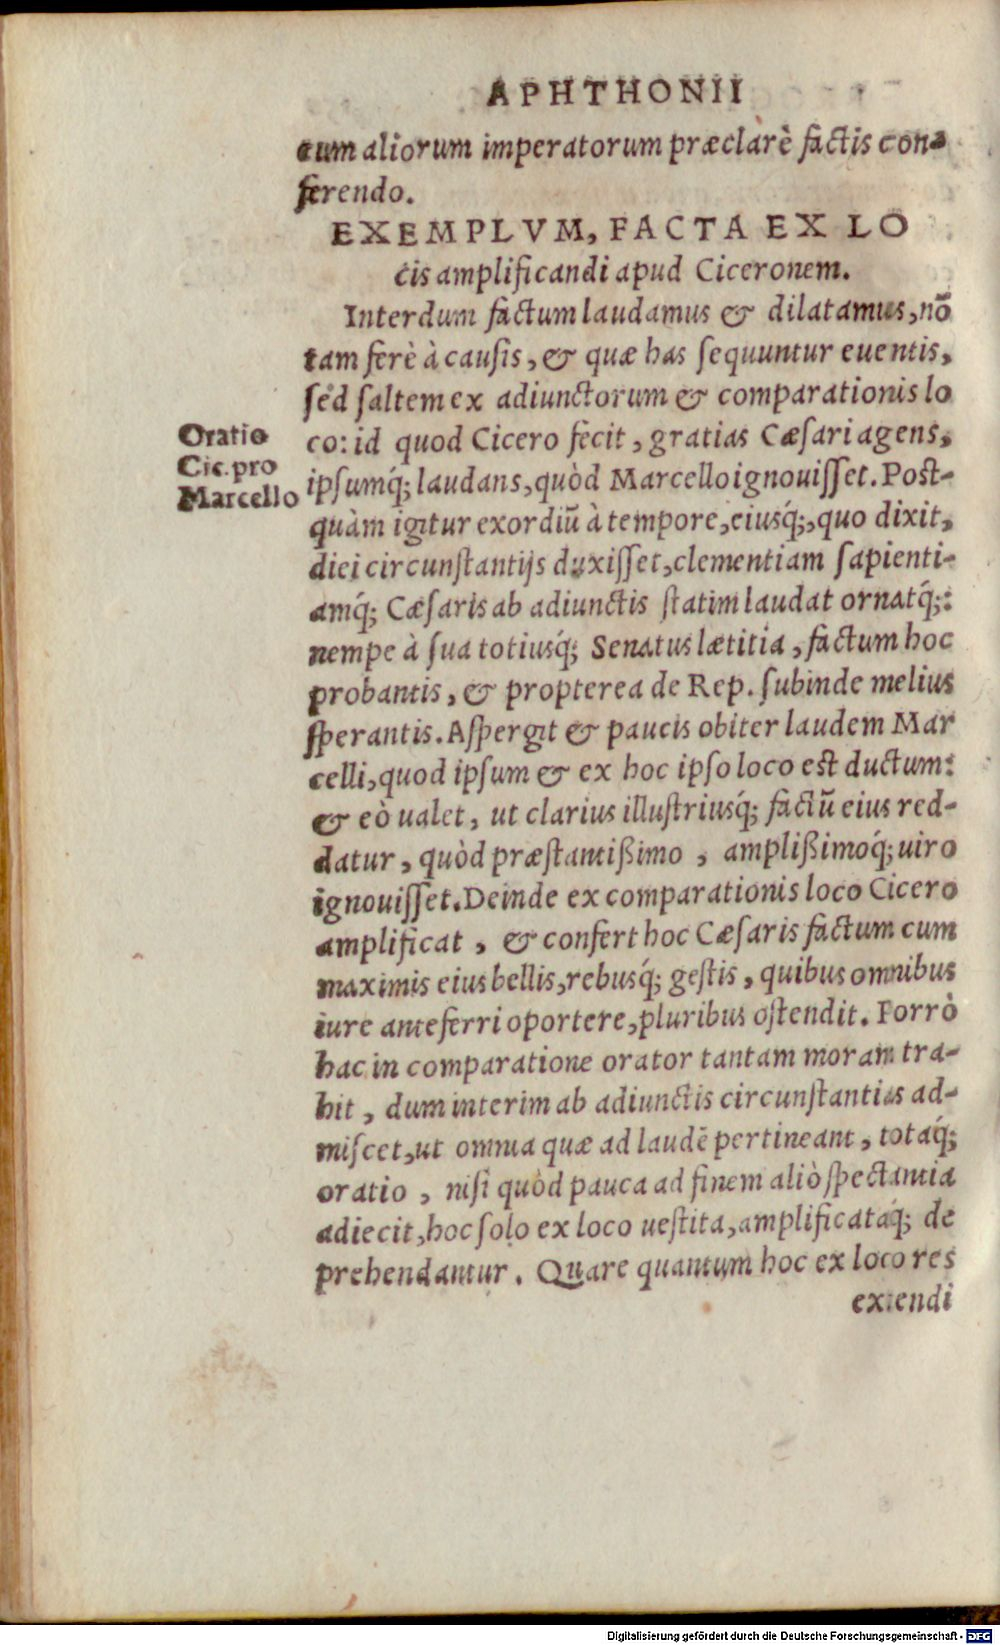 APHTHONII
cum aliorum imperatorum præclarè factis con-
ferendo.
EXEMPLVM, FACTA EX LO
cis amplificandi apud Ciceronem.
Interdum factum laudamus & dilatamus, nō
tam ferè à causis, & quæ has sequuntur euentis,
sed saltem ex adiunctorum & comparationis lo
co: id quod Cicero fecit, gratias Cæsari agens,
Oratio
Cic. pro
Marcello
ipsumq́; laudans, quòd Marcello ignouisset. Post-
quàm igitur exordiū à tempore, eiusq́;, quo dixit,
diei circunstantijs duxisset, clementiam sapienti-
amq́; Cæsaris ab adiunctis statim laudat ornatq́;:
nempe à sua totiusq́; Senatus lætitia, factum hoc
probantis, & propterea de Rep. subinde melius
sperantis. Aspergit & paucis obiter laudem Mar
celli, quod ipsum & ex hoc ipso loco est ductum:
& eò ualet, ut clarius illustriusq́; factū eius red-
datur, quòd præstantißimo, amplißimoq́; uiro
ignouisset. Deinde ex comparationis loco Cicero
amplificat, & confert hoc Cæsaris factum cum
maximis eius bellis, rebusq́; gestis, quibus omnibus
iure anteferri oportere, pluribus ostendit. Porrò
hac in comparatione orator tantam moram tra-
hit, dum interim ab adiunctis circunstantias ad-
miscet, ut omnia quæ ad laudē pertineant, totaq́;
oratio, nisi quòd pauca ad finem aliò spectantia
adiecit, hoc solo ex loco uestita, amplificataq́; de
prehendantur. Quare quantum hoc ex loco res
extendi
Digitalisierung gefördert durch die Deutsche Forschungsgemeinschaft - DFG